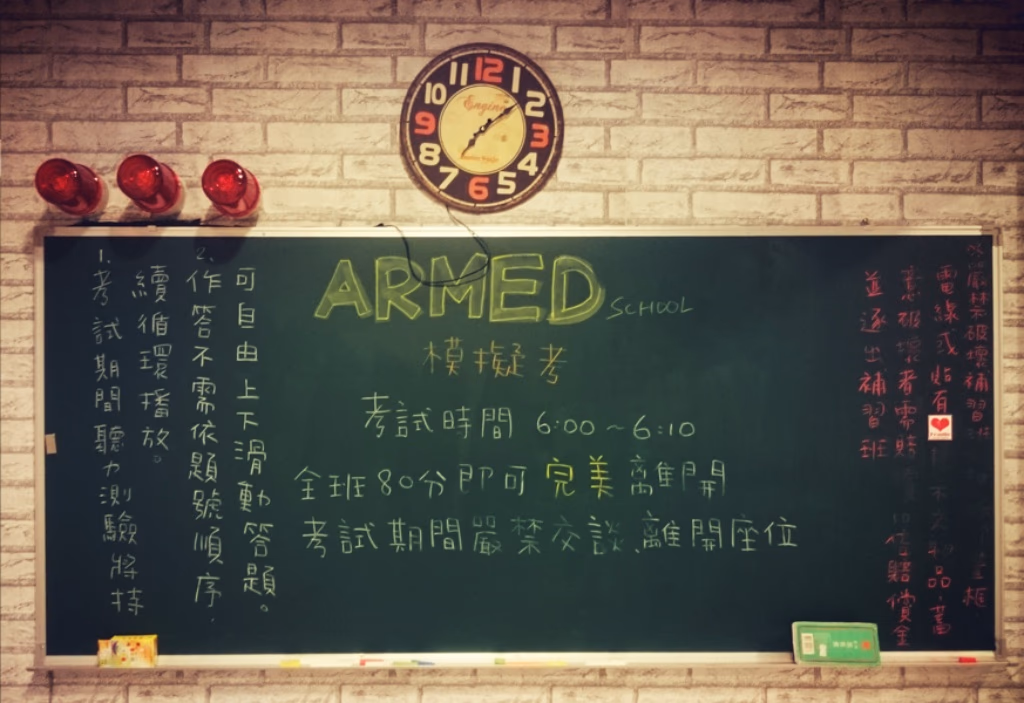 11 12 1
10 2
9 3
8 4
7 6 5
Engine
ARMED SCHOOL
模擬考
考試時間 6:00~6:10
全班80分即可完美離開
考試期間嚴禁交談、離開座位
1. 考試期間聽力測驗將持
續循環播放。
2. 作答不需依題號順序,
可自由上下滑動答題。
嚴禁破壞補習班
電線或貼有
品,蓄
意破壞者需賠
賠償金
並逐出補習班